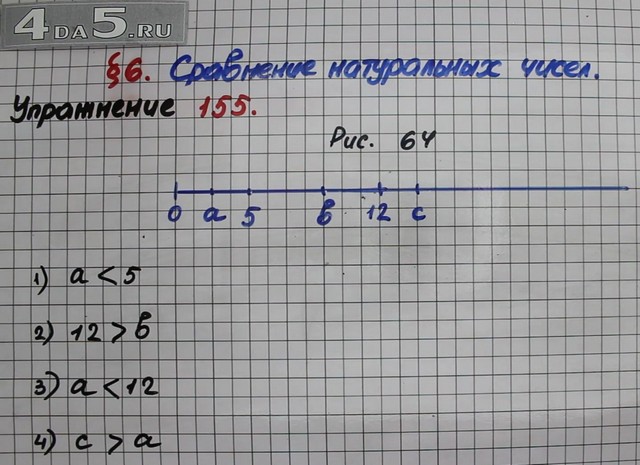 4DA5.RU
§6. Сравнение натуральных чисел.
Упражнение 155.
Рис. 64
0 a 5 в 12 c
1) a < 5
2) 12 > в
3) a < 12
4) c > a